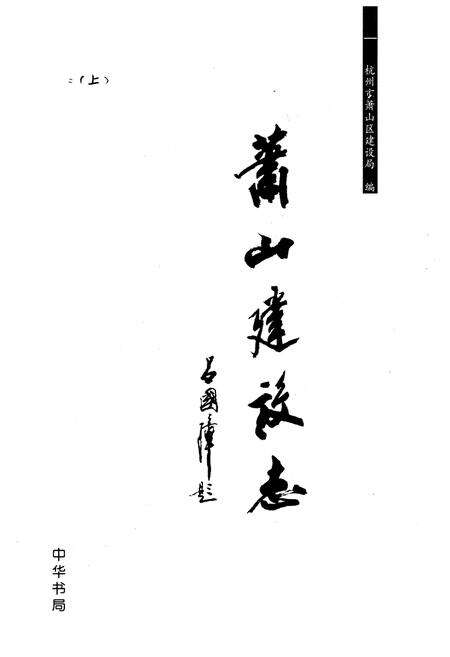 杭州市萧山区建设局 编
蕭山建設志
吕國璋题
：（上）
中华书局